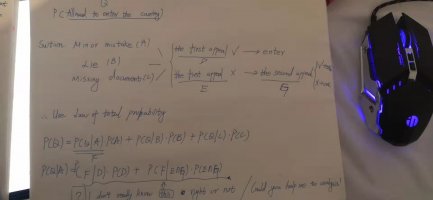 Q
P(Allowed to enter the country)
Suffer Minor mistake (A)
Lie (B)
Missing documents (C)
the first appeal ✓ → enter
D
the first appeal × → the second appeal
E
∴ Use Law of total probability
P(Q) = P(Q|A) P(A) + P(Q|B) · P(B) + P(Q|C) · P(C)
F
P(Q|A) = P(F|D) · P(D) + P(F|E∩G) P(E∩G)
? I don't really know this is right or not / Could you help me to analysis?